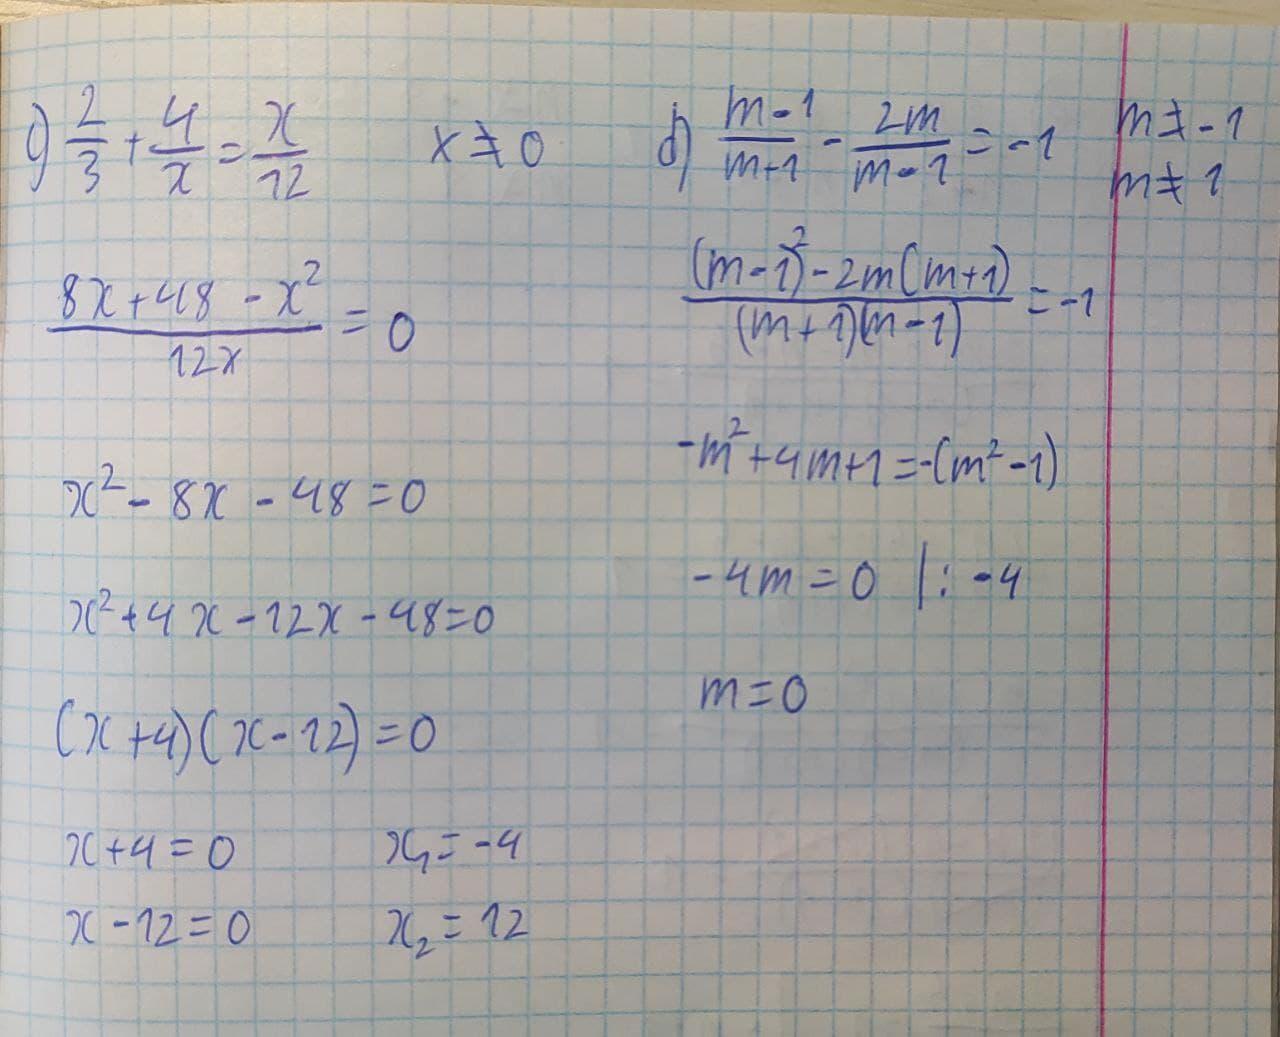 c) 2/3 + 4/x = x/12   x ≠ 0
(8x + 48 - x²)/(12x) = 0
x² - 8x - 48 = 0
x² + 4x - 12x - 48 = 0
(x + 4)(x - 12) = 0
x + 4 = 0   x₁ = -4
x - 12 = 0   x₂ = 12
d) (m - 1)/(m + 1) - 2m/(m - 1) = -1   m ≠ -1
m ≠ 1
((m - 1)² - 2m(m + 1))/((m + 1)(m - 1)) = -1
-m² + 4m + 1 = -(m² - 1)
-4m = 0 |: -4
m = 0